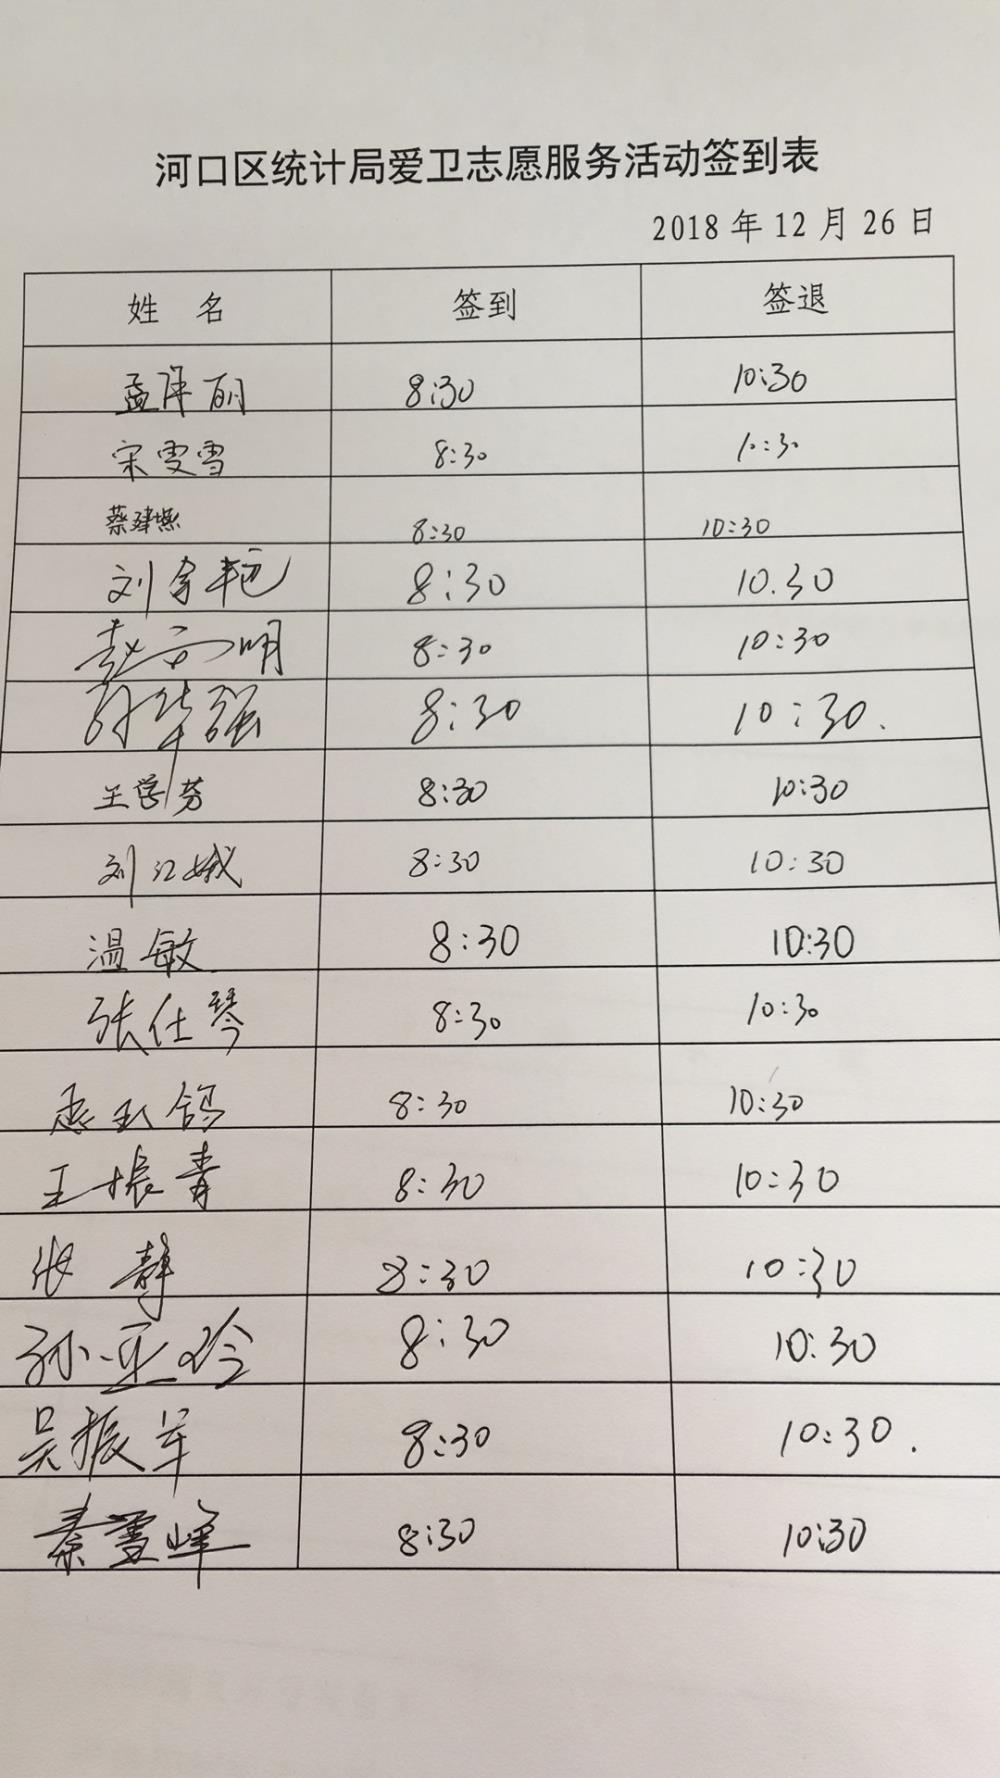 河口区统计局爱卫志愿服务活动签到表
2018 年 12 月 26 日
姓 名 签到 签退
孟萍丽 8:30 10:30
宋雯雪 8:30 10:30
蔡建燕 8:30 10:30
刘艳 8:30 10.30
赵明 8:30 10:30
孙华强 8:30 10:30.
王学芬 8:30 10:30
刘红娥 8:30 10:30
温敏 8:30 10:30
张仕琴 8:30 10:30
8:30 10:30
王振青 8:30 10:30
张静 8:30 10:30
孙亚玲 8:30 10:30
吴振军 8:30 10:30.
秦雪峰 8:30 10:30